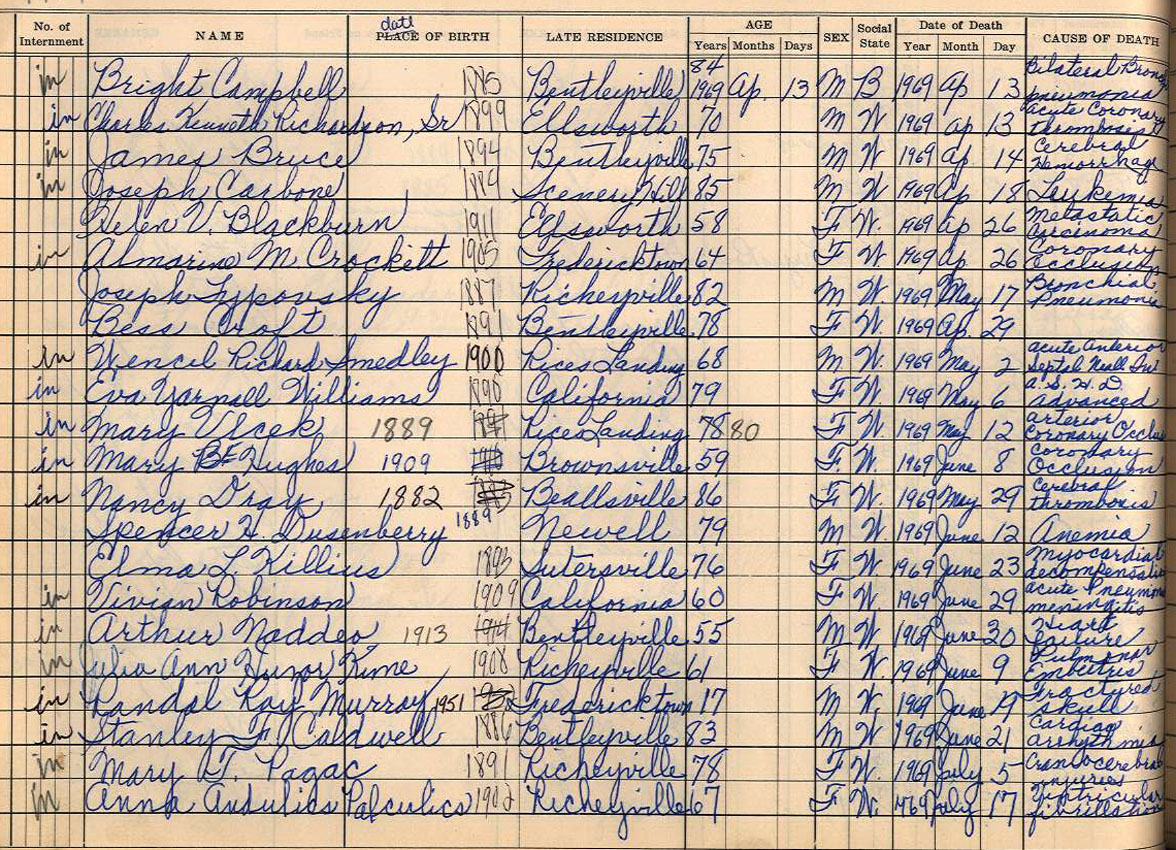 No. of Internment NAME date PLACE OF BIRTH LATE RESIDENCE AGE Years Months Days SEX Social State Date of Death Year Month Day CAUSE OF DEATH
in Bright Campbell 1885 Bentleyville 84 1969 Ap. 13 M B 1969 Ap 13 Bilateral Bronc pneumonia
in Charles Kenneth Richardson, Sr 1899 Ellsworth 70 M W 1969 ap 13 acute Coronary thrombosis
in James Bruce 1894 Bentleyville 75 M W. 1969 Ap. 14 Cerebral Hemorrhag
in Joseph Carbone 1884 Scenery Hill 85 M W. 1969 Ap 18 Leukemia
Helen V. Blackburn 1911 Ellsworth 58 F W. 1969 Ap 26 Metastatic Carcinoma
in Almarine M. Crockett 1905 Fredericktown 64 F W. 1969 Ap. 26 Coronary Occlusion
Joseph Lypovsky 1887 Richeyville 82 M W. 1969 May 17 Bronchial Pneumonia
Bess Croft 1891 Bentleyville 78 F W. 1969 Ap. 29
in Wencel Richard Smedley 1900 Rices Landing 68 M W. 1969 May 2 acute anterior Septal
in Eva Yarnall Williams 1890 California 79 F W. 1969 May 6 A.S.H.D. Advanced
in Mary Vlcek 1889 Rices Landing 78 80 F W. 1969 May 12 arterior Coronary Occlus
in Mary Hughes 1909 Brownsville 59 F W. 1969 June 8 Coronary Occlusion
in Nancy Dray 1882 Beallsville 86 F W. 1969 May 29 Cerebral thrombosis
Spencer H. Dusenberry 1889 Newell 79 M W. 1969 June 12 Anemia
Elma L. Killius 1893 Sutersville 76 F W. 1969 June 23 Myocardial decompensatio
in Vivian Robinson 1909 California 60 F W. 1969 June 29 acute Pneumon
in Arthur Naddeo 1913 1914 Bentleyville 55 M W. 1969 June 20 Heart failure
in Julia Ann Rime 1908 Richeyville 61 F W. 1969 June 9 Pulmonary Embolus
in Randal Ray Murray 1951 Fredericktown 17 M W. 1969 June 19 Fractured skull
in Stanley F. Caldwell 1886 Bentleyville 83 M W. 1969 June 21 Cardiac arrhythmia
in Mary T. Pagac 1891 Richeyville 78 F W. 1969 July 5 Craniocerebral injuries
in Anna Andulics Palculics 1902 Richeyville 67 F W. 1969 July 17 Ventricular fibrillation